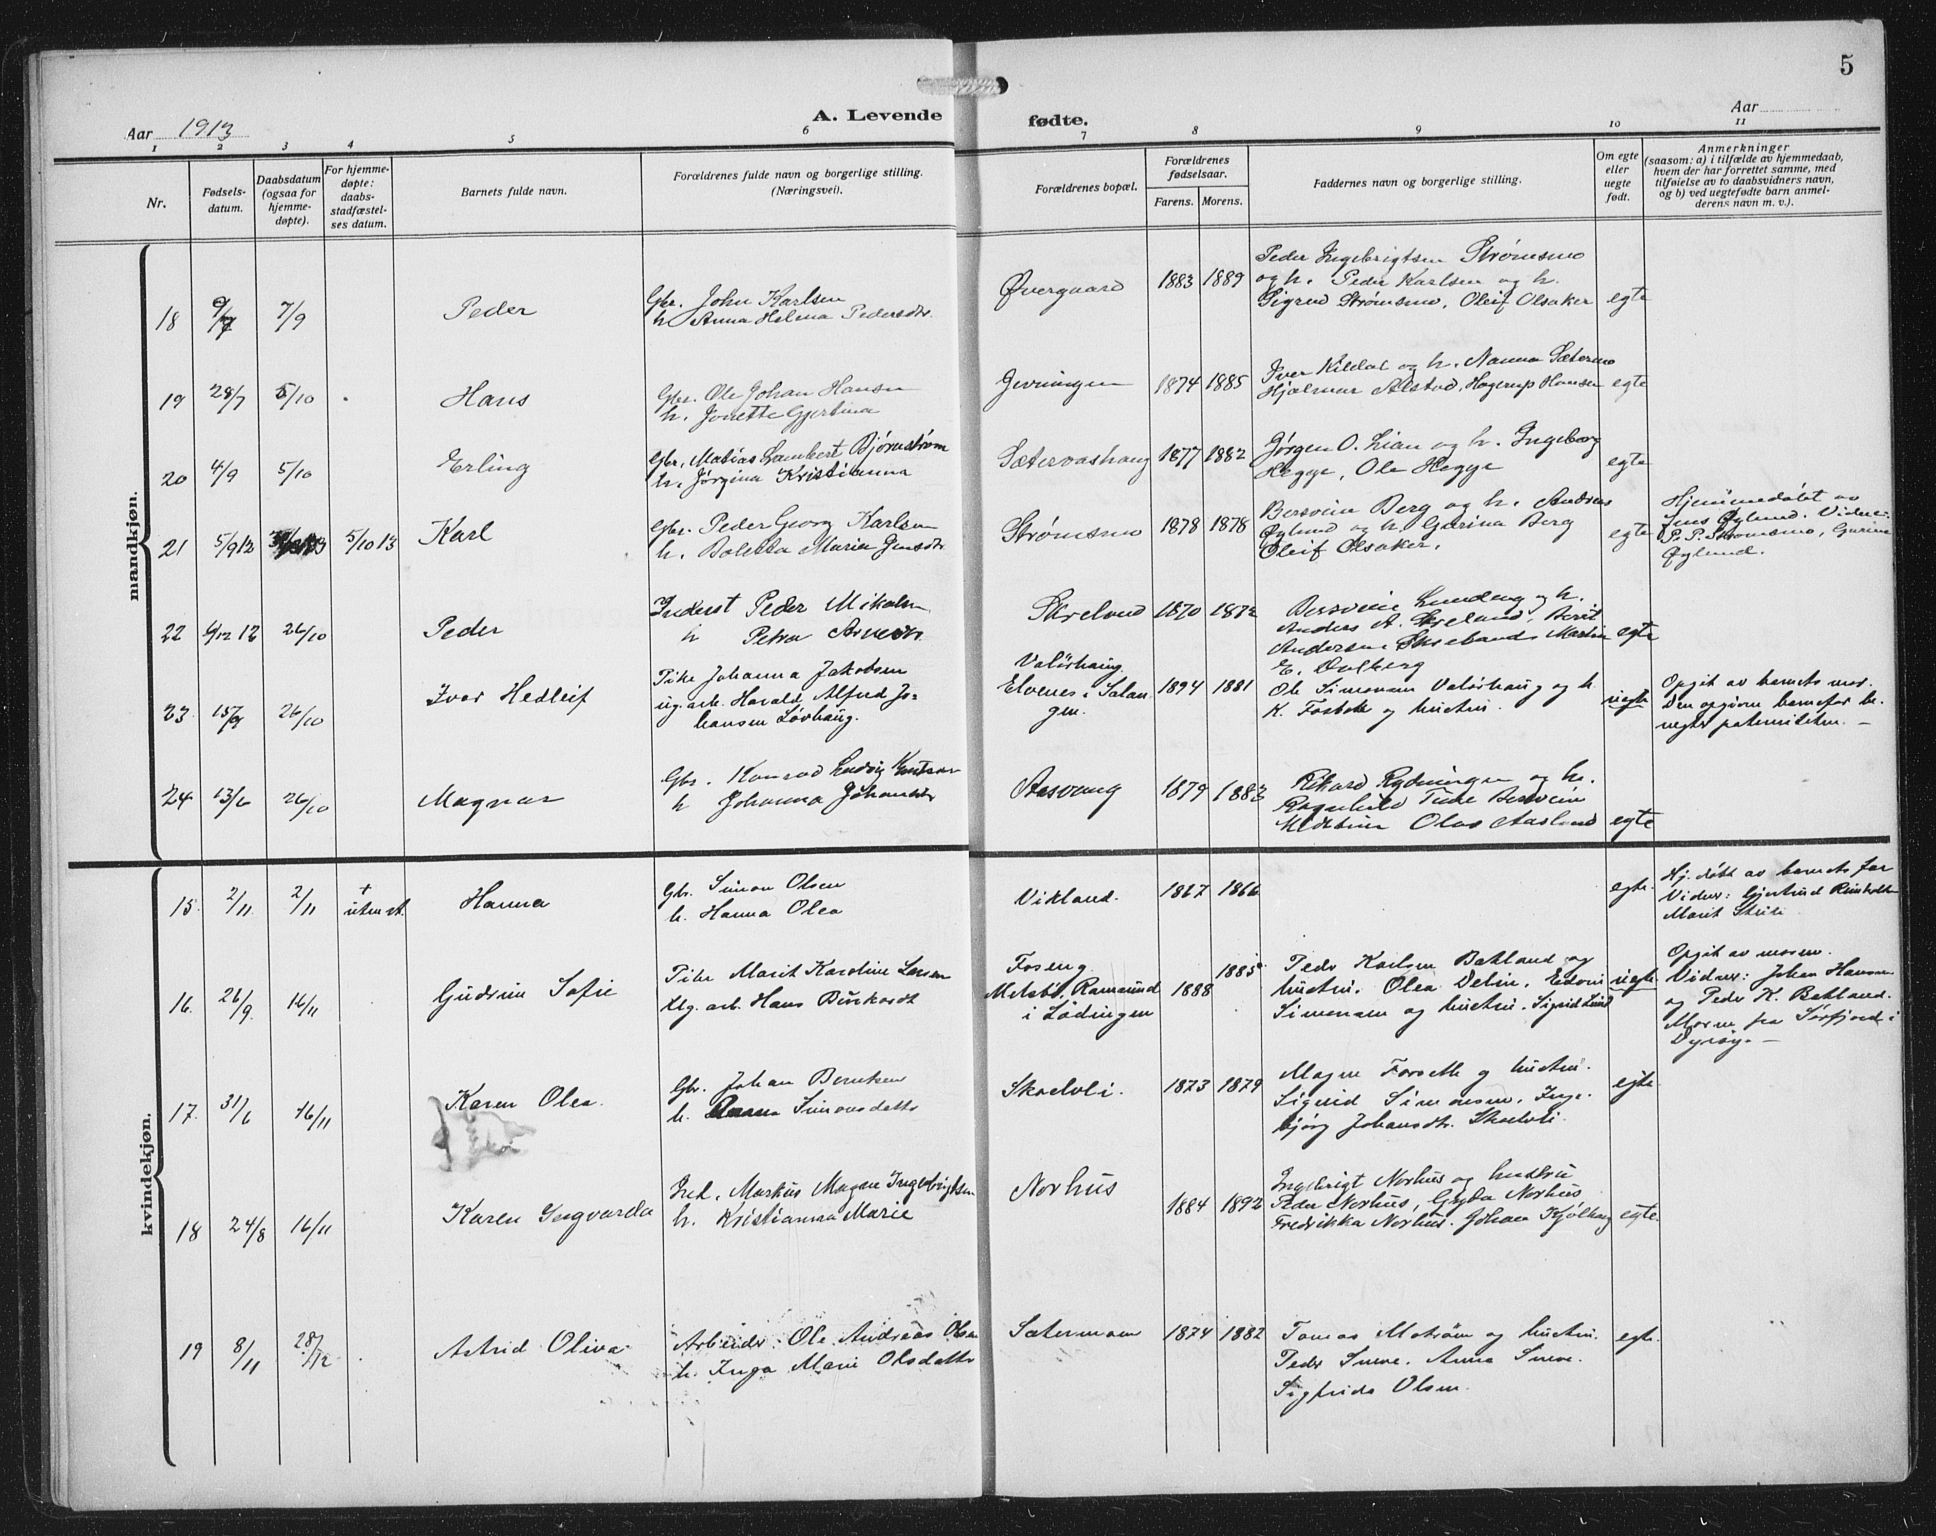 5
Aar 1913
A. Levende
fødte.
Aar
1 2 3 4 5 6 7 8 9 10 11
Nr.
Fødsels-
datum.
Daabsdatum
(ogsaa for
hjemme-
døpte).
For hjemme-
døpte:
daabs-
stadfæstel-
ses datum.
Barnets fulde navn.
Forældrenes fulde navn og borgerlige stilling.
(Næringsvei).
Forældrenes bopæl.
Forældrenes
fødselsaar.
Farens. Morens.
Faddernes navn og borgerlige stilling.
Om egte
eller
uegte
født.
Anmerkninger
(saasom: a) i tilfælde av hjemmedaab,
hvem der har forrettet samme, med
tilføielse av to daabsvidners navn,
og b) ved uegtefødte barn anmel-
derens navn m. v.).
mandkjøn.
18 9/7 7/9 Peder
Gbr. John Karlsen
h. Anna Helena Pedersdtr.
Øvergaard 1883 1889
Peder Ingebrigtsen Strømsmo
og h. Peder Karlsen og h.
Sigrid Strømsmo, Oleif Olsaker
egte
19 28/7 5/10 Hans
Gbr. Ole Johan Hansen
h. Jonette Gjertina
Gevningen 1874 1885
Iver Kildal og h. Nanna Sætermo
Hjalmar Alstad, Hagerup Hansen
egte
20 4/9 5/10 Erling
Gbr. Matias Lambert Bjørnstrøm
h. Jørgina Kristianna
Sætervashaug 1877 1882
Jørgen O. Lian og h. Ingeborg
Hegge, Ole Hegge
egte
21 5/9 12 5/10 13 Karl
Gbr. Peder Georg Karlsen
h. Boletta Maria Jensdtr
Strømsmo 1878 1878
Bersvein Berg og h. Andreas
Øylund og h. Gurina Berg
Oleif Olsaker.
egte
Hjemmedøbt av
Jens Øylund. Vidner:
P. P. Strømsmo, Gurine
Øylund.
22 6/12 12 26/10 Peder
Inderst Peder Mikalsen
h Petra Arnesdtr.
Skrelund 1870 1872
Bersvein Lundeng og h.
Anders A. Skreland, Berit
Andersen Skrelands Martin
E. Dalberg
egte
23 15/9 26/10 Ivar Hedleif
Pike Johanna Jakobsen
ug. arb. Harald Alfred Jo-
hansen Løvhaug.
Valørhaug
Elvenes i Salan-
gen. 1894 1881
Ole Simonsen Valørhaug og h.
K. Fosbak og hustru.
uegte
Opgit av barnets mor.
Den opgivne barnefar be-
negter paterniteten. —
24 13/6 26/10 Magnar
Gbr. Konrad Ludvig Knutsen
h Johanna Johansdtr
Aasvang 1879 1883
Rikard Rydningen og h.
Ragnhild Tune Bersvein
Olav Aaslund
egte
kvindekjøn.
15. 2/11 2/11 + Hanna
Gbr. Simon Olsen
h. Hanna Olea
Vikland. 1867 1866
egte.
Hj. døbt av barnets far
Vidner: Gjertrud
Marit
16. 26/9. 16/11 Gudrun Sofie
Pike Marit Karoline Larsen
Ug. arb. Hans Burkardt
Foseng.
Melsbø, Ramsund
i Lødingen 1888 1885.
Peder Karlsen Bakland og
hustru. Olea Delin. Edvin
Simonsen og hustru. Sigrid Lund
uegte.
Opgit av moren.
Vidner: Johan Hansen
og Peder K. Bakland.
Moren fra Sørfjord i
Dyrøy. —
17. 31/6 16/11 Karen Olea.
Gbr. Johan Berntsen
h. Anna Simonsdatter
Skadvoli. 1873 1879
Magne Forseth og hustru.
Sigrid Simonsen. Inge-
bjørg Johansdtr. Skadvoli.
egte
18 24/8 16/11 Karen Ingvarda
Ind. Markus Magen Ingebrigtsen
h. Kristianna Marie
Norhus 1884 1892
Ingebrigt Norhus og hustru
Peder Norhus, Gyda Norhus
Fredrikka Norhus. Johan Kjølhaug
egte.
19 8/11 28/12 Astrid Oliva
Arbeider Ole Andreas Olsen
h. Inga Marie Olsdatter
Sætermoen 1874 1882
Tomas Moström og hustru.
Peder Sneve. Anna Sneve.
Sigfrida Olsen.
egte.